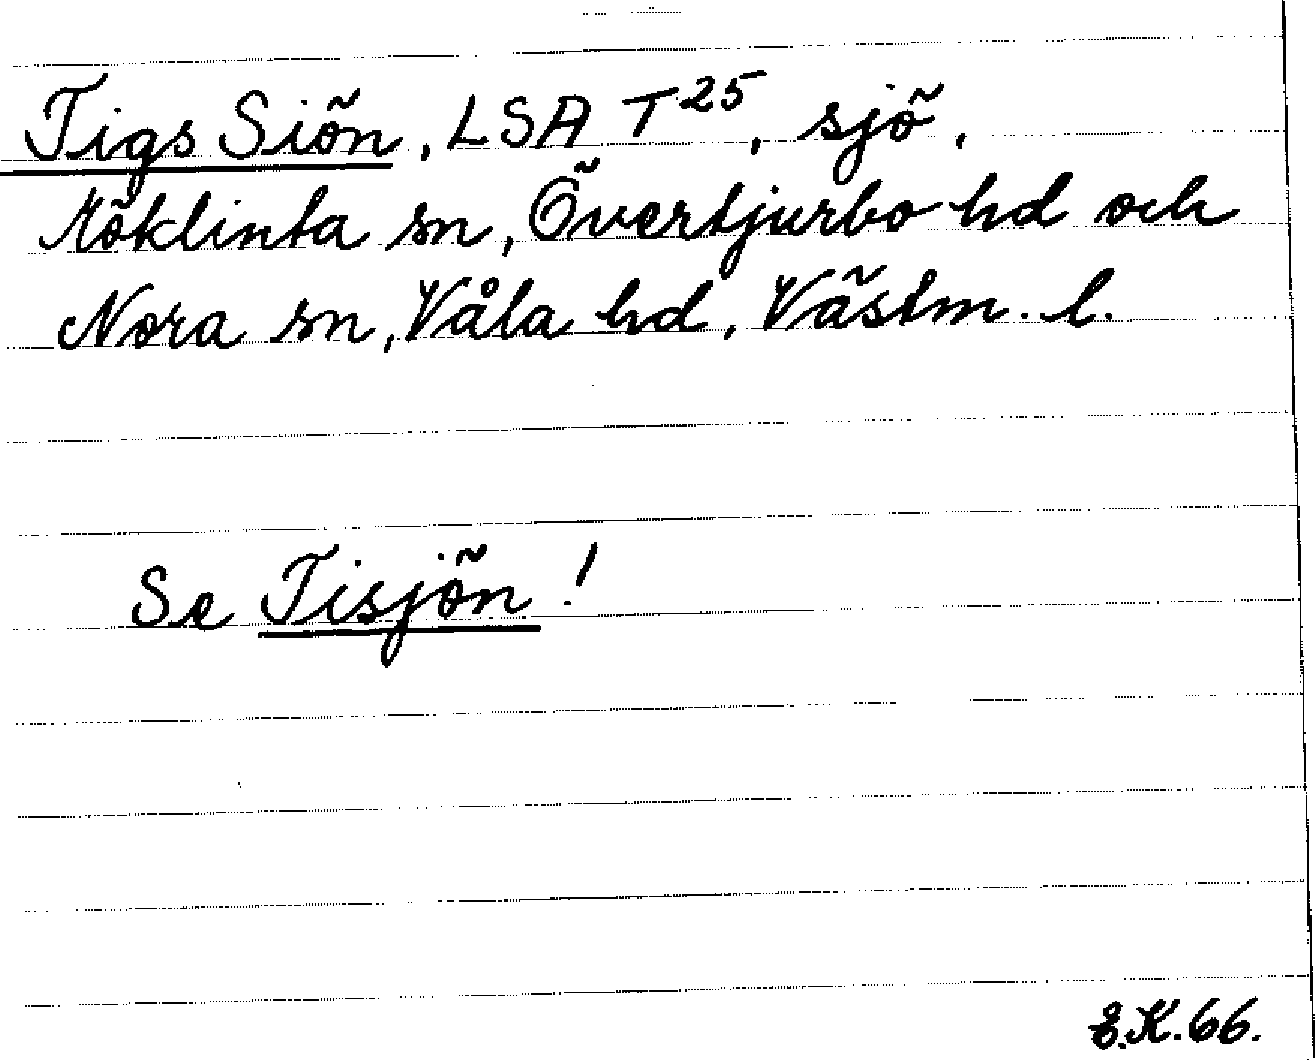 Tigs Siön, LSA T25, sjö,
Möklinta sn, Övertjurbo hd och
Nora sn, Våla hd, Västm. l.
Se Tisjön!
E.K. 66.